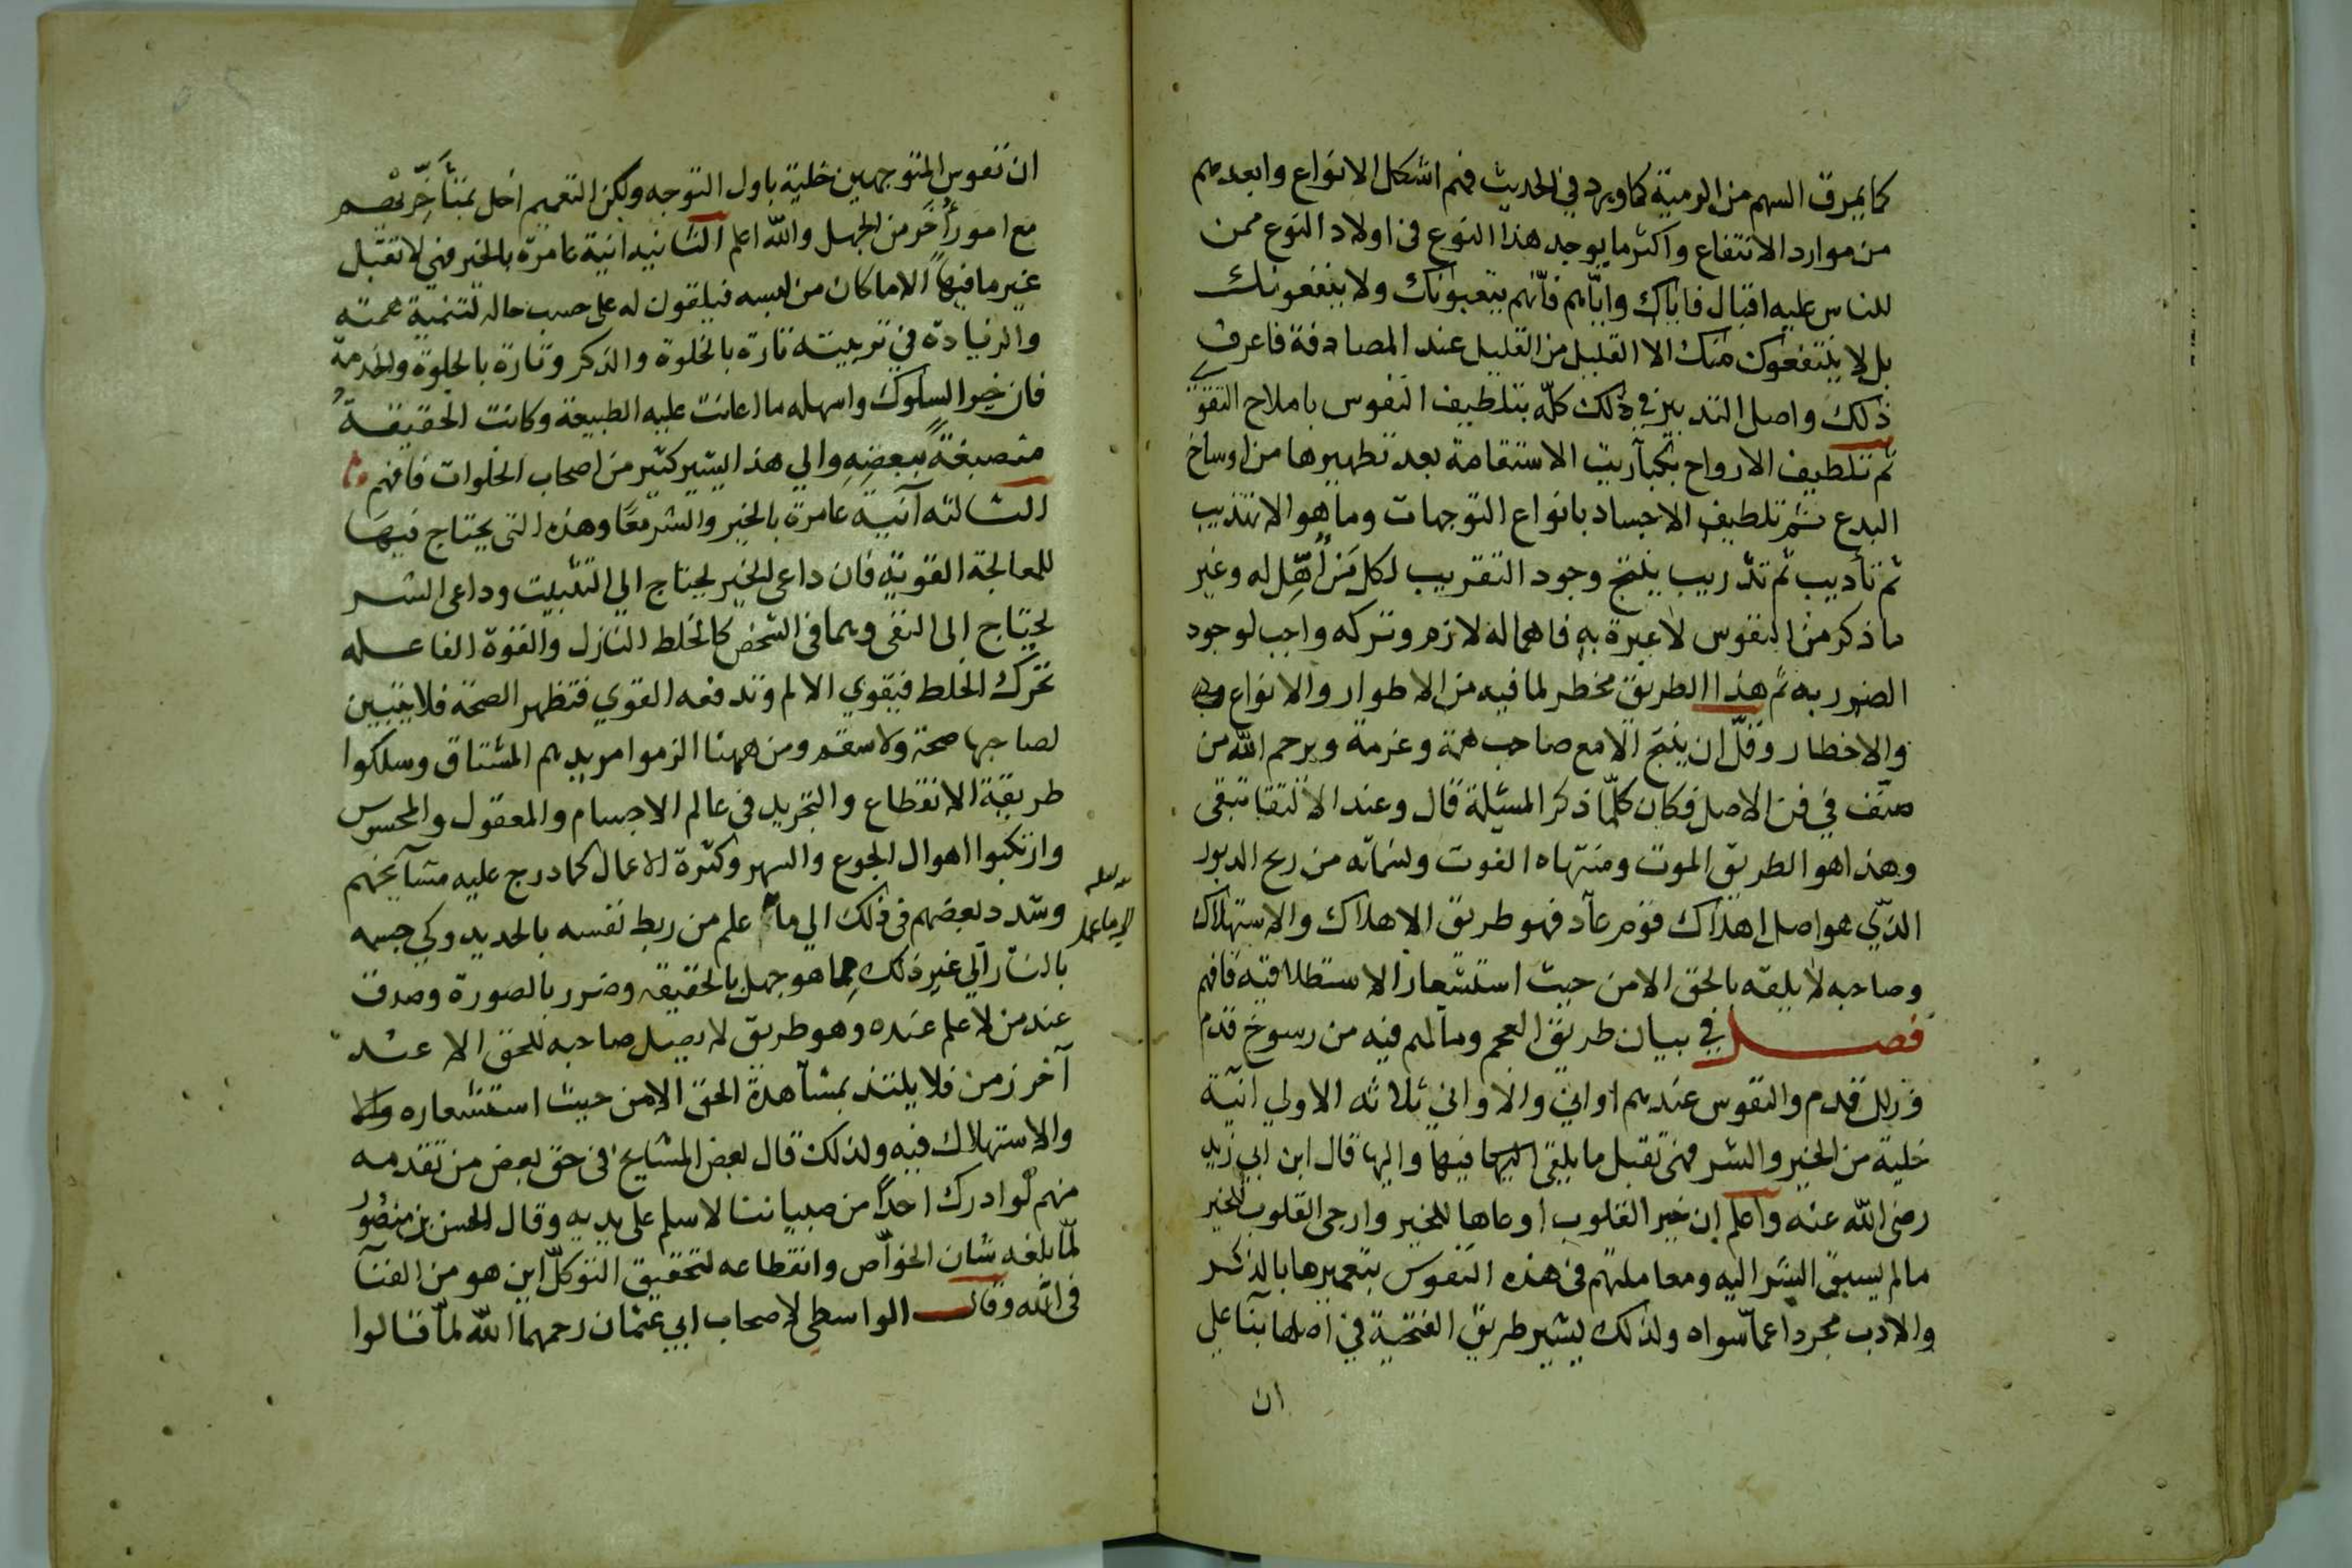 كما يمرق السهم من الرمية كما ورد في الحديث فهم اشكل الانواع وابعدهم
من موارد الانتفاع واكثر ما يوجد هذا النوع في اولاد النوع ممن
للناس عليه اقبال فاياك واياهم فانهم يتعبونك ولا ينفعونك
بل لا ينتفعون منك الا القليل من القليل عند المصادفة فاعرف
ذلك واصل التدبير في ذلك كلّه بتلطيف النفوس باملاح التقوى
ثم تلطيف الارواح بكباريت الاستقامة بعد تطهيرها من اوساخ
البدع ثم تلطيف الاجساد بانواع التوجهات وما هو الا تهذيب
ثم تأديب ثم تدريب ينتج وجود التقريب لكل مَن أُهِّل له وغير
ما ذكر من النفوس لا عبرة به فاهماله لازم وتركه واجب لوجود
الضرر به ثم هذا الطريق مخطر لما فيه من الاطوار والانواع
والاخطار وقلّ ان ينتج الا مع صاحب همة وعزمة ويرحم الله من
صنّف في فن الاصل فكان كلّما ذكر المسئلة قال وعند الالتقا تبقى
وهذا هو الطريق الموت ومنتهاه الفوت ونسماته من ريح الدبور
الذي هو اصل اهلاك قوم عاد فهو طريق الاهلاك والاستهلاك
وصاحبه لا يلقه بالحق الا من حيث استشعار الاستطلاقية فافهم
فصل في بيان طريق العجم وما لهم فيه من رسوخ قدم
وزلل قدم والنفوس عندهم اواني والاواني ثلاثه الاولي انية
خلية من الخير والشر فهي تقبل ما يلقى اليها فيها واليها قال ابن ابي زيد
رضى الله عنه واعلم ان خير القلوب اوعاها للخير وارجى القلوب للخير
ما لم يسبق الشر اليه ومعاملتهم في هذه النفوس بتعميرها بالذكر
والادب مجردا عمّا سواه ولذلك يشير طريق الفتحية في اصلها بنآ على
ان
ان نفوس المتوجهين خلية باول التوجه ولكن التعميم اخل بمتأخّريهم
مع امور أُخَر من الجهل والله اعلم الثانيه انية عامرة بالخير فهي لا تقبل
غير ما فيها الا ما كان من لبسه فيلقون له على حسب حاله لتنمية همته
والزيادة في تربيته تارة بالخلوة والذكر وتارة بالجلوة والخدمة
فان خير السلوك واسهله ما اعانت عليه الطبيعة وكانت الحقيقةُ
منصبغةً ببعضِهِ والي هذا يشير كثير من اصحاب الخلوات فافهم
الثالثه آنية عامرة بالخير والشر معًا وهذه التى يحتاج فيها
للمعالجة القوية فان داعى الخير يحتاج الي التثبيت وداعى الشر
يحتاج إلى النفى وهما في الشخص كالخلط النازل والقوة الفاعله
تحرك الخلط فيقوي الالم وتدفعه القوي فتظهر الصحة فلا يتبين
لصاحبها صحة ولا سقم ومن ههنا الزموا مريديهم المشتاق وسلكوا
طريقة الانقطاع والتجريد في عالم الاجسام والمعقول والمحسوس
وارتكبوا اهوال الجوع والسهر وكثرة الاعمال كما درج عليه مشآئخهم
وشدد بعضهم في ذلك الي ما علم من ربط نفسه بالحديد وكي جسمه
بالنار آلي غير ذلك مِما هو جهل بالحقيقه وضرر بالصورة وصدق
عند من لا علم عنده وهو طريق لا يصل صاحبه للحق الا عند
آخر زمن فلا يلتذ بمشآهدة الحق الا من حيث استشعاره
والاستهلاك فيه ولذلك قال بعض المشايخ في حق بعض من تقدمه
منهم لو ادرك احدًا من صبياننا لاسلم على يديه وقال الحسن بن منصور
لمّا بلغه شان الخوّاص وانقطاعه لتحقيق التوكل اين هو من الفنآ
في الله وقال الواسطى لاصحاب ابي عثمان رحمهما الله لمّا قالوا